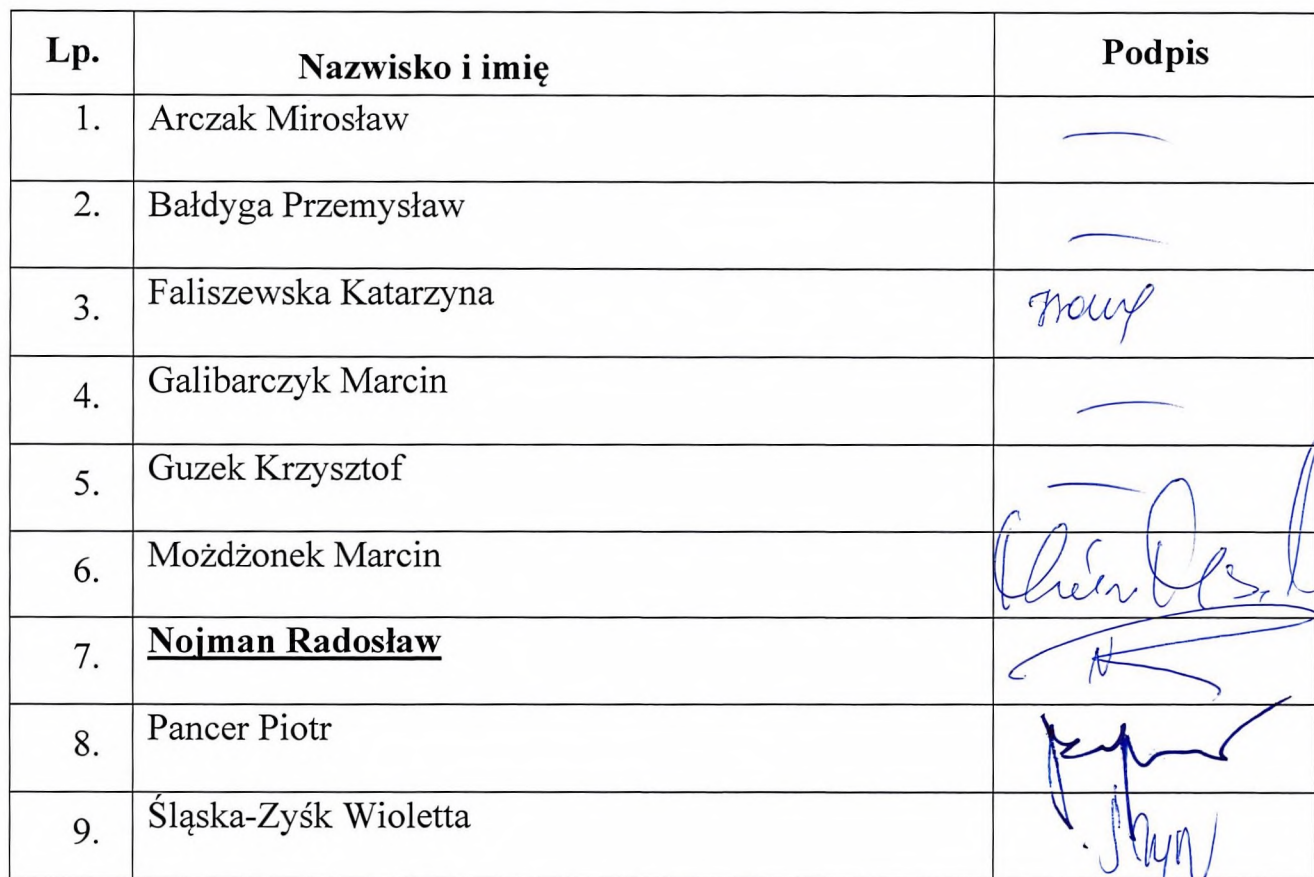 Lp. Nazwisko i imię Podpis
1. Arczak Mirosław —
2. Bałdyga Przemysław —
3. Faliszewska Katarzyna
4. Galibarczyk Marcin —
5. Guzek Krzysztof —
6. Możdżonek Marcin
7. Nojman Radosław
8. Pancer Piotr
9. Śląska-Zyśk Wioletta